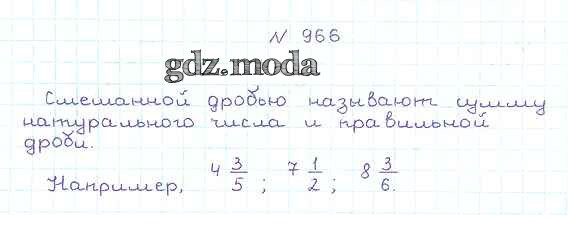 № 966
gdz.moda
Смешанной дробью называют сумму
натурального числа и правильной
дроби.
Например, 4 3/5 ; 7 1/2 ; 8 3/6.